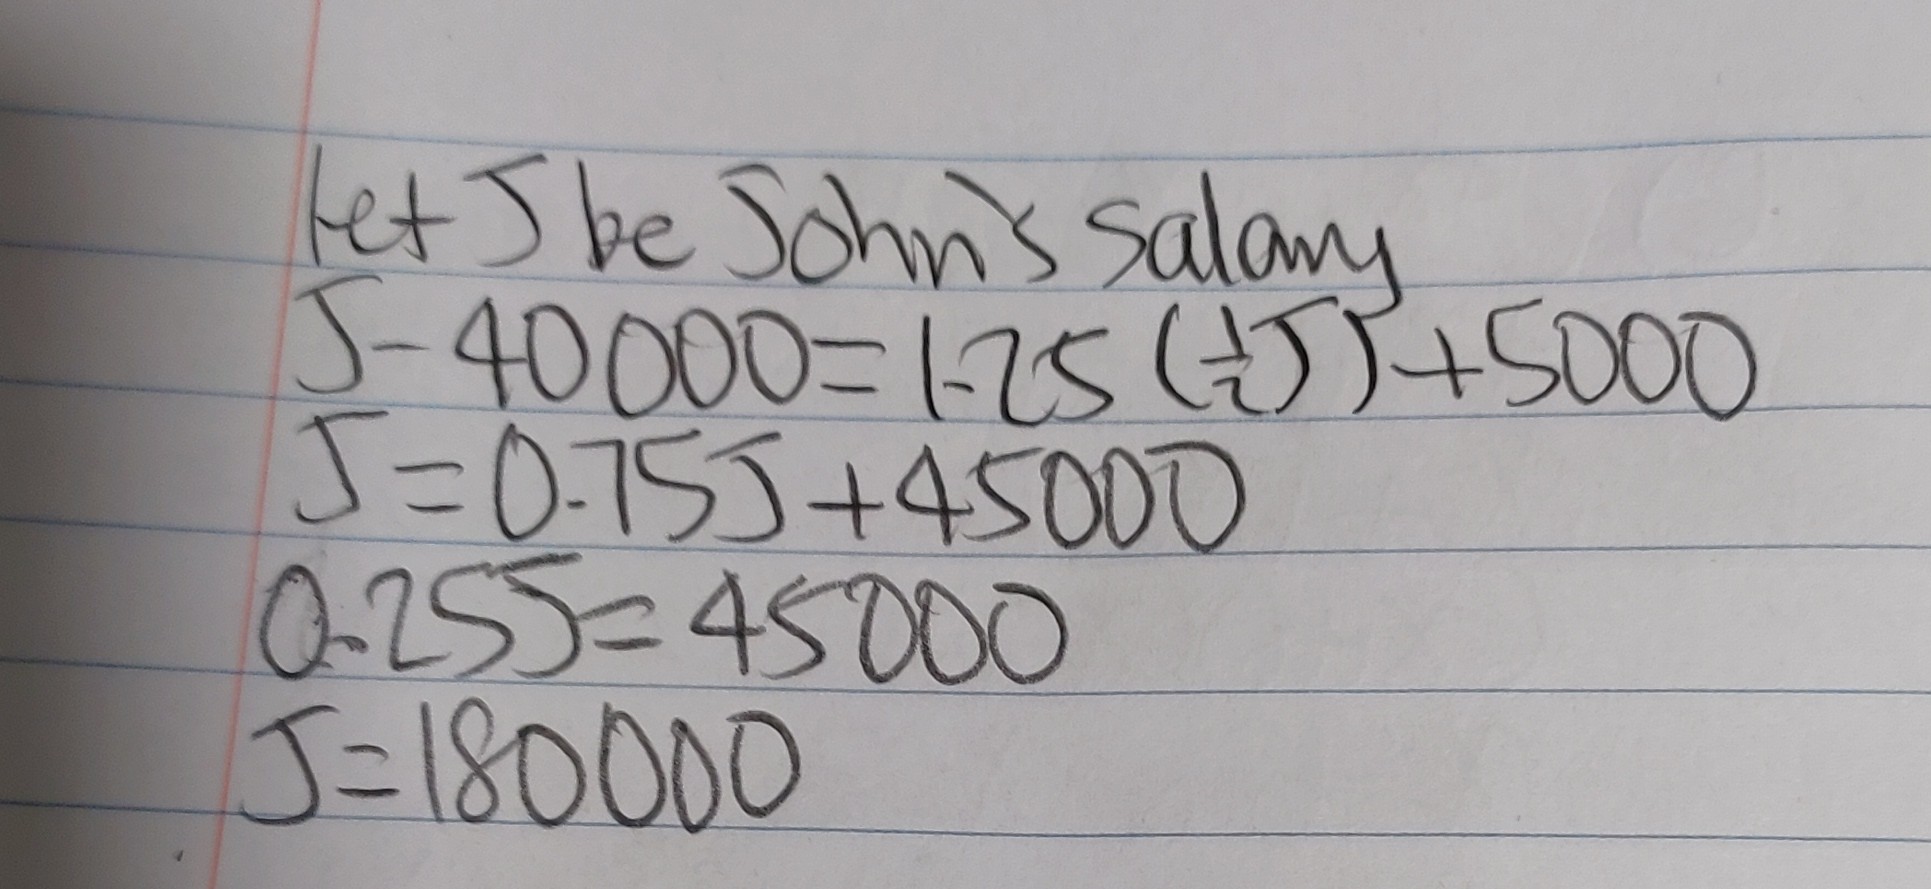 Let J be John's salary
J-40000=1.25(½J)+5000
J=0.75J+45000
0.25J=45000
J=180000